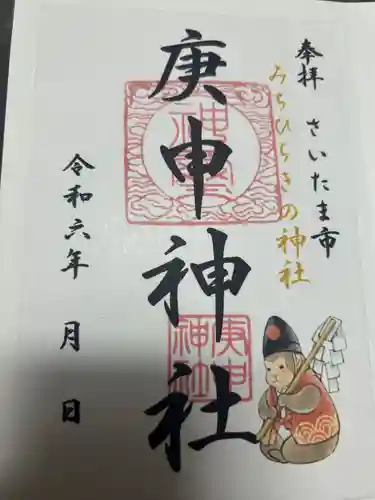 奉拝 さいたま市
みちひらきの神社
庚申神社
庚申
神社
令和六年 月 日